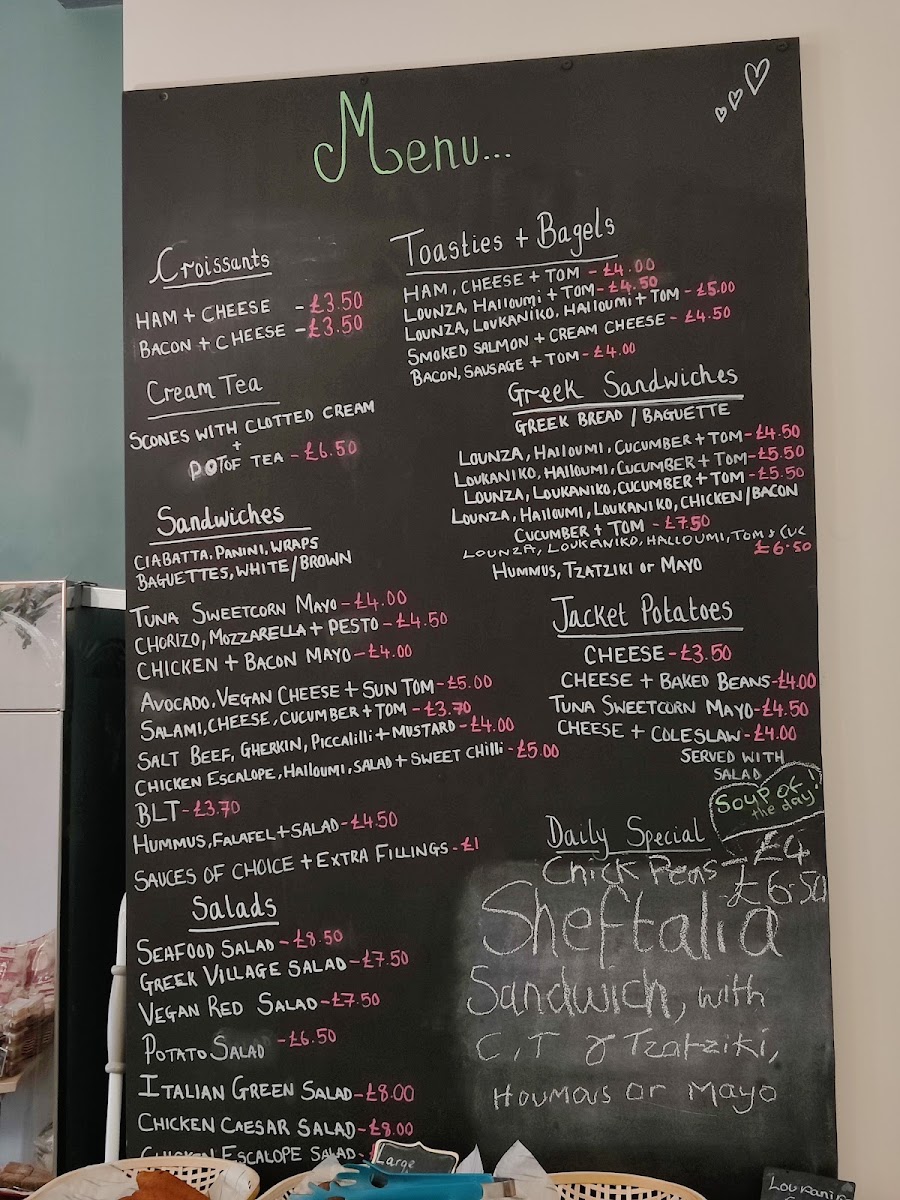 Menu...
Croissants
HAM + CHEESE - £3.50
BACON + CHEESE - £3.50
Cream Tea
SCONES WITH CLOTTED CREAM
+
POT OF TEA - £6.50
Sandwiches
CIABATTA, PANINI, WRAPS
BAGUETTES, WHITE/BROWN
TUNA SWEETCORN MAYO - £4.00
CHORIZO, MOZZARELLA + PESTO - £4.50
CHICKEN + BACON MAYO - £4.00
AVOCADO, VEGAN CHEESE + SUN TOM - £5.00
SALAMI, CHEESE, CUCUMBER + TOM - £3.70
SALT BEEF, GHERKIN, PICCALILLI + MUSTARD - £4.00
CHICKEN ESCALOPE, HALLOUMI, SALAD + SWEET CHILLI - £5.00
BLT - £3.70
HUMMUS, FALAFEL + SALAD - £4.50
SAUCES OF CHOICE + EXTRA FILLINGS - £1
Salads
SEAFOOD SALAD - £8.50
GREEK VILLAGE SALAD - £7.50
VEGAN RED SALAD - £7.50
POTATO SALAD - £6.50
ITALIAN GREEN SALAD - £8.00
CHICKEN CAESAR SALAD - £8.00
CHICKEN ESCALOPE SALAD -
Toasties + Bagels
HAM, CHEESE + TOM - £4.00
LOUNZA, HALLOUMI + TOM - £4.50
LOUNZA, LOUKANIKO, HALLOUMI + TOM - £5.00
SMOKED SALMON + CREAM CHEESE - £4.50
BACON, SAUSAGE + TOM - £4.00
Greek Sandwiches
GREEK BREAD / BAGUETTE
LOUNZA, HALLOUMI, CUCUMBER + TOM - £4.50
LOUKANIKO, HALLOUMI, CUCUMBER + TOM - £5.50
LOUNZA, LOUKANIKO, CUCUMBER + TOM - £5.50
LOUNZA, HALLOUMI, LOUKANIKO, CHICKEN/BACON
CUCUMBER + TOM - £7.50
LOUNZA, LOUKANIKO, HALLOUMI, TOM & CUC
£6.50
HUMMUS, TZATZIKI or MAYO
Jacket Potatoes
CHEESE - £3.50
CHEESE + BAKED BEANS - £4.00
TUNA SWEETCORN MAYO - £4.50
CHEESE + COLESLAW - £4.00
SERVED WITH
SALAD
Soup of
the day!
Daily Special
Chick Peas - £4
£6.50
Sheftalia
Sandwich, with
C, T & Tzatziki,
Houmous or Mayo
Large